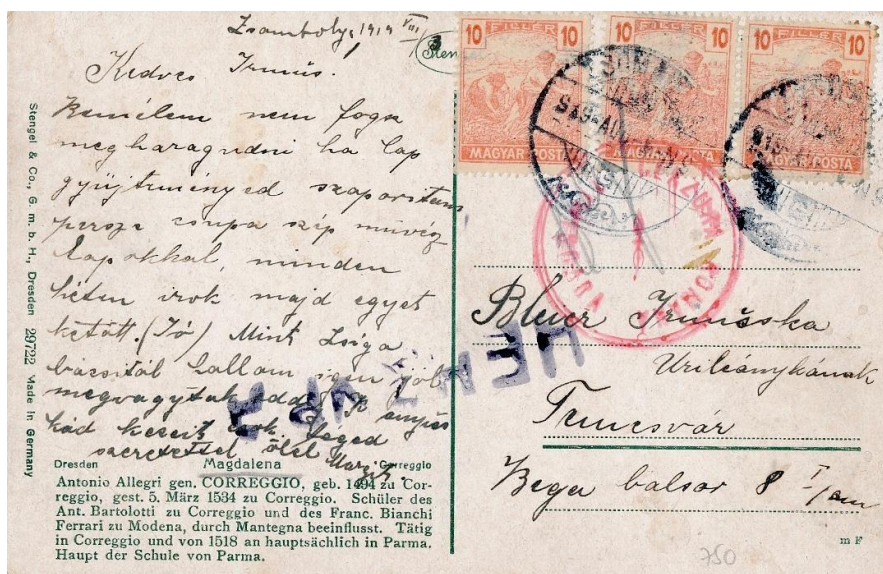 Zsomboly, 1919 VIII/3
Kedves Irmus!
Remélem nem fogsz
megharagudni ha lap
gyüjteményed szaporitom
persze csupa szép művész
lapokkal, minden
héten irok majd egyet
kettőt. (Jó) Mint Zsiga
bácsitól hallom igen jól
megvagytok
kezeit csok Téged
szeretettel ölel Margit.
Stengel & Co., G. m. b. H., Dresden 29722 Made in Germany
Dresden Magdalena Correggio
Antonio Allegri gen. CORREGGIO, geb. 1494 zu Cor-
reggio, gest. 5. März 1534 zu Correggio. Schüler des
Ant. Bartolotti zu Correggio und des Franc. Bianchi
Ferrari zu Modena, durch Mantegna beeinflusst. Tätig
in Correggio und von 1518 an hauptsächlich in Parma.
Haupt der Schule von Parma.
10 FILLÉR 10
MAGYAR POSTA
10 FILLÉR 10
MAGYAR POSTA
10 FILLÉR 10
MAGYAR POSTA
Bleier Irmuska
Urileánykának
Temesvár
Bega balsor 8 I/em
m F
750